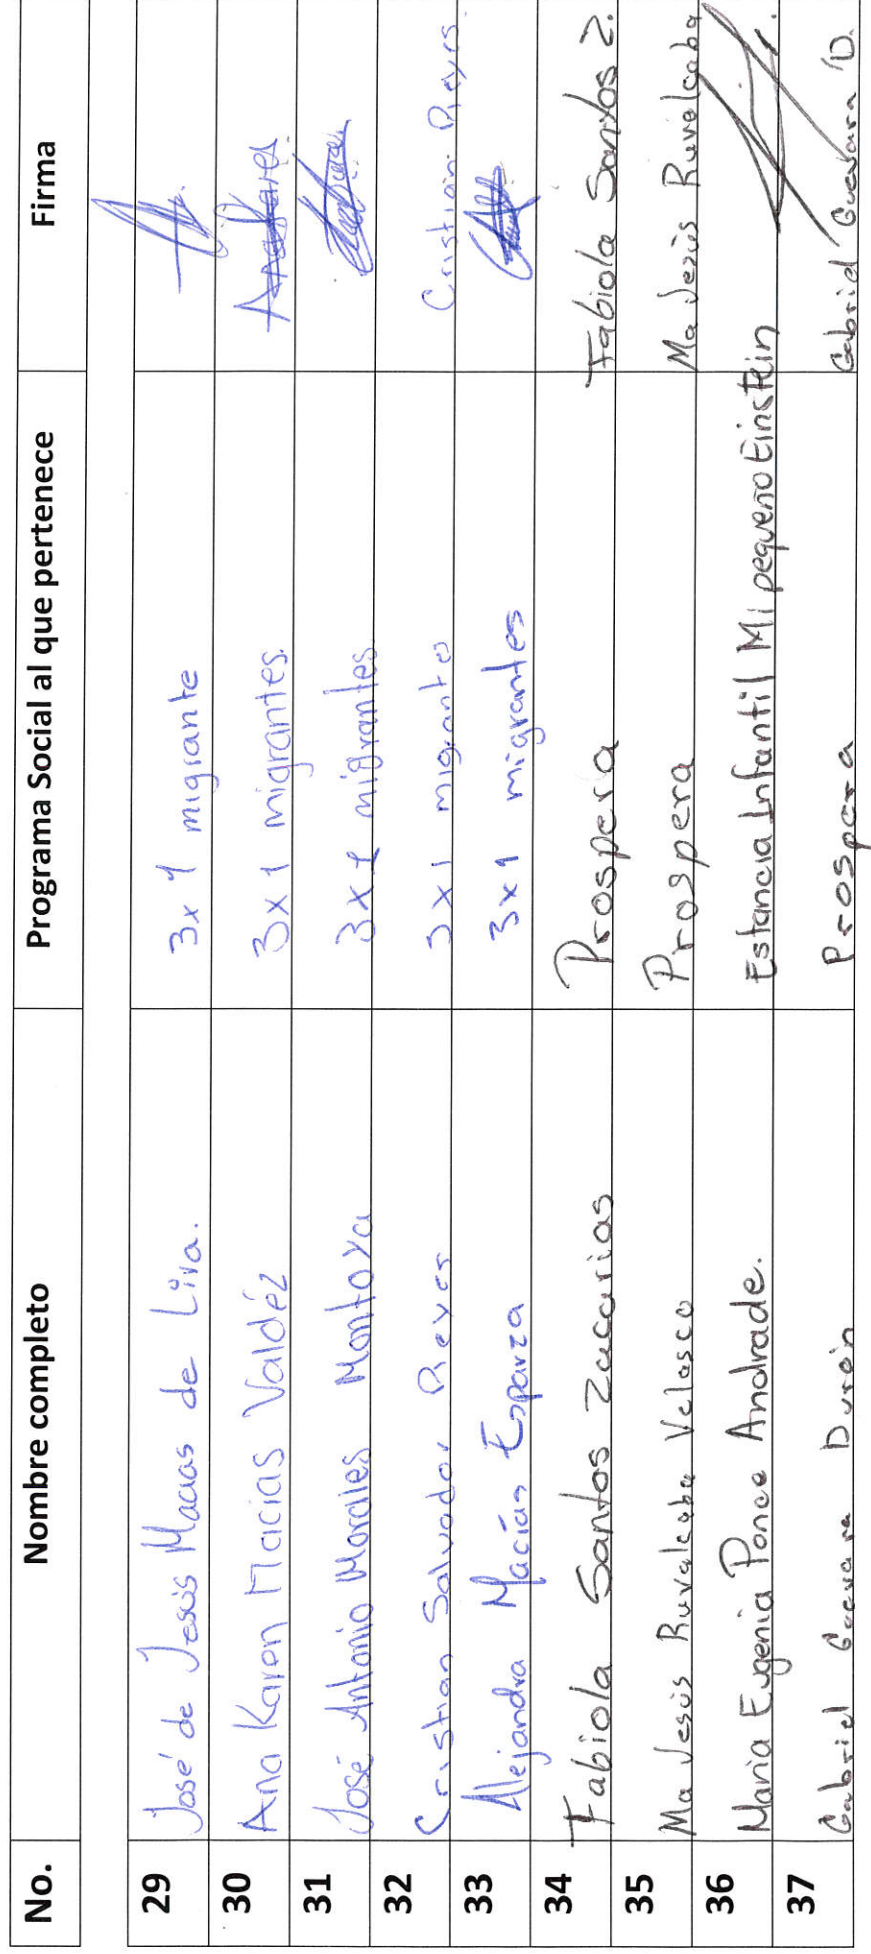 No. Nombre completo Programa Social al que pertenece Firma
29 José de Jesús Macias de Lira. 3x1 migrante
30 Ana Karen Macias Valdéz 3x1 migrantes.
31 José Antonio Morales Montoya 3x1 migrantes.
32 Cristian Salvador Reyes 3x1 migrantes Cristian Reyes.
33 Alejandra Macías Esparza 3x1 migrantes
34 Fabiola Santos Zacarias Prospera Fabiola Santos Z.
35 Ma Jesús Ruvalcaba Velasco Prospera Ma Jesús Ruvalcaba
36 Maria Eugenia Ponce Andrade. Estancia Infantil Mi pequeño Einstein
37 Gabriel Guevara Durón Prospera Gabriel Guevara D.